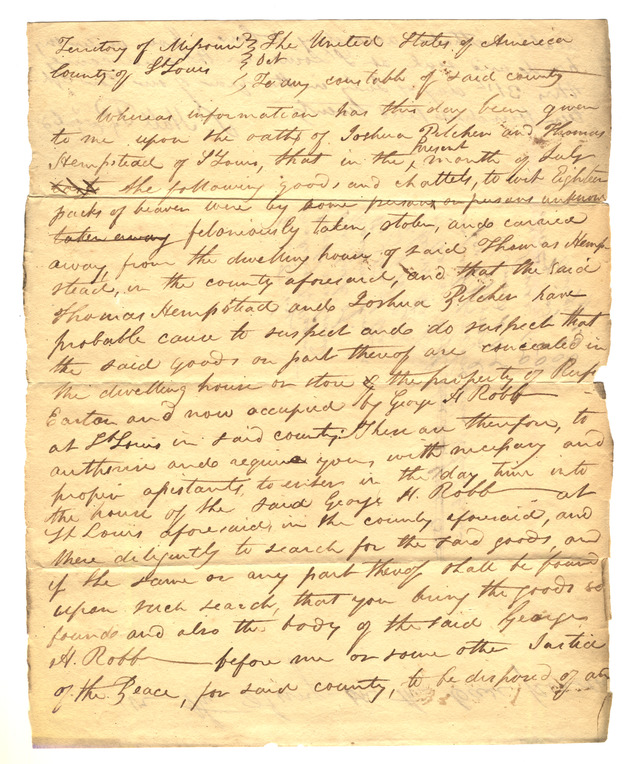 Territory of Missouri } The United States of America
County of St Louis } Sct
To any constable of said county
Whereas information has this day been given
to me upon the oaths of Joshua Pilcher and Thomas
Present
Hempstead of St Louis, that in the month of July
the following goods and chattels, to wit Eighteen
packs of beaver were by some person or persons unknown
taken away feloniously taken, stolen, and carried
away, from the dwelling house of said Thomas Hemp
stead, in the county aforesaid, and that the said
Thomas Hempstead and Joshua Pilcher have
probable cause to suspect and do suspect that
the said goods or part thereof are concealed in
the dwelling house or store & the property of Rufs
Easton and now occupied by George H Robb
at St Louis in said county. These are therefore, to
authorise and require you, with necessary and
proper assistants, to enter in the day time into
the house of the said George H. Robb at
St Louis aforesaid, in the county aforesaid, and
there diligently to search for the said goods, and
if the same or any part thereof shall be found
upon such search, that you bring the goods so
found and also the body of the said George
H. Robb before me or some other Justice
of the Peace, for said county, to be disposed of